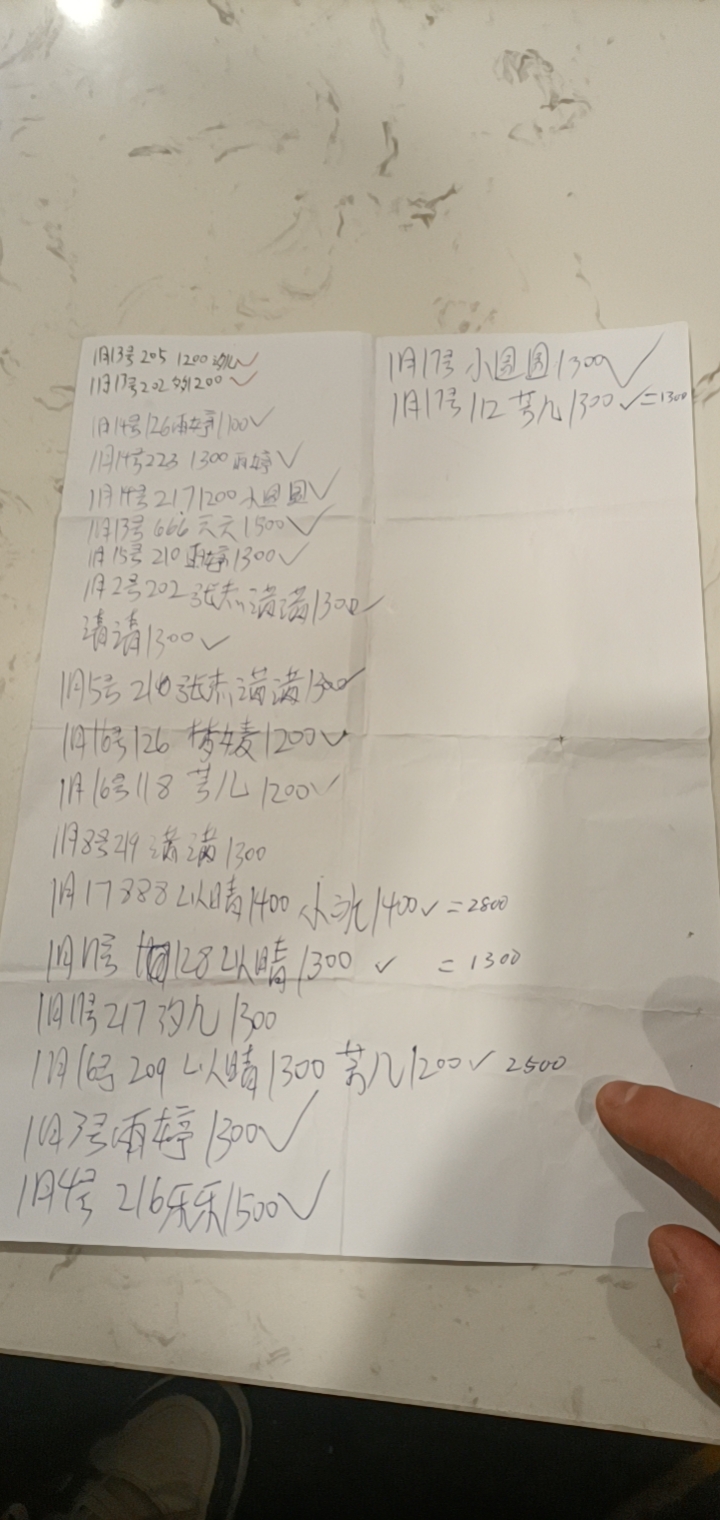 1月13号 205 1200 ✓
1月17号 202 1200 ✓
1月14号 126 雨婷 1100 ✓
1月14号 223 1300 雨婷 ✓
1月14号 217 1200 小圆圆 ✓
1月13号 666 天天 1500 ✓
1月15号 210 雨婷 1300 ✓
1月2号 202 张杰 满满 1300 ✓
1300 ✓
1月5号 210 张杰 满满 1300 ✓
1月16号 126 梦媛 1200 ✓
1月16号 118 1200 ✓
1月8号 219 满满 1300
1月17 888 以晴 1400 小 1400 ✓ = 2800
1月17号 128 以晴 1300 ✓ = 1300
1月17号 217 1300
1月16号 209 以晴 1300 1200 ✓ 2500
1月3号 雨婷 1300 ✓
1月4号 216 乐乐 1500 ✓
1月17号 小圆圆 1300 ✓
1月17号 112 1300 ✓ = 1300